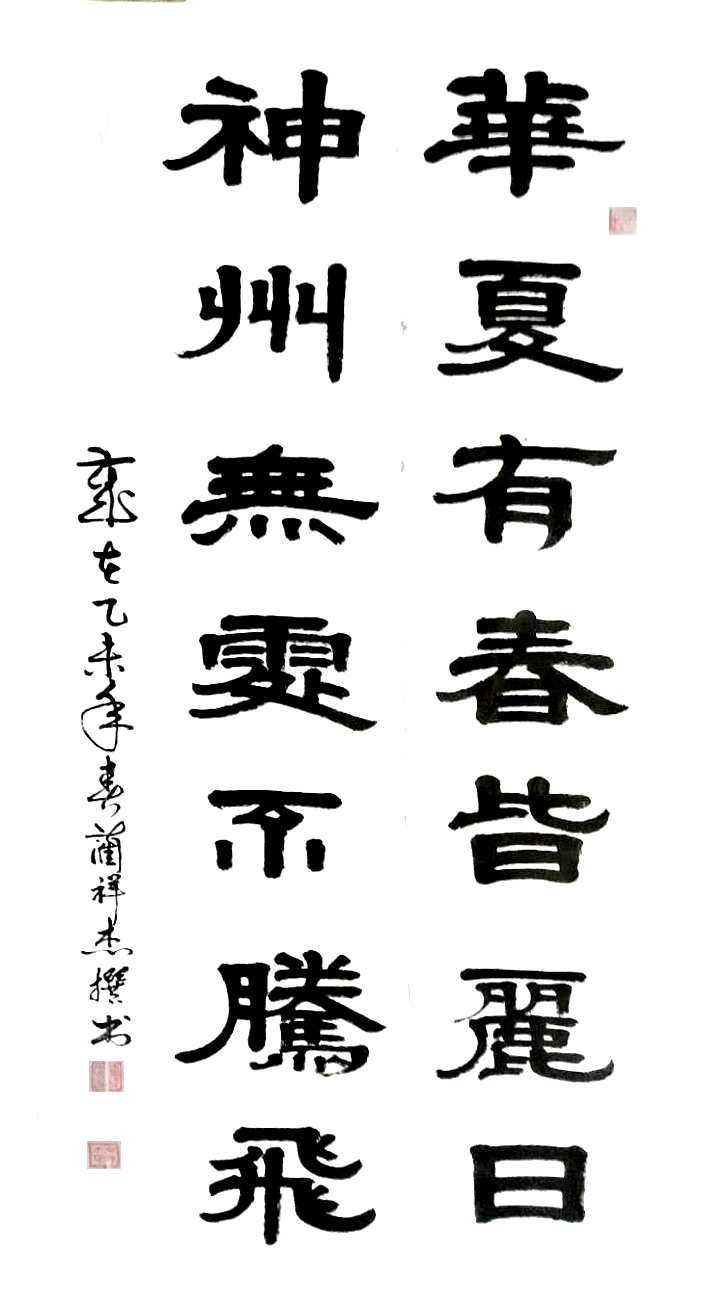 華夏有春皆麗日
神州無處不騰飛
歲在乙未年春祥杰撰书